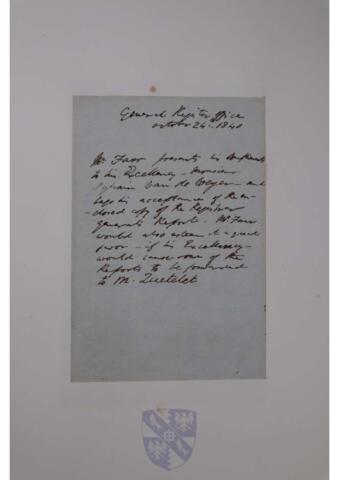 General Register Office
October 24th 1840
Mr Farr presents his compliments
to his Excellency - Monsieur
Sylvain Van de Weyer - and
begs his acceptance of the en-
-closed copy of the Registrar
Generals Reports. Mr Farr
would also esteem it a great
favor - if his Excellency
would cause one of the
Reports to be forwarded
to M. Quetelet